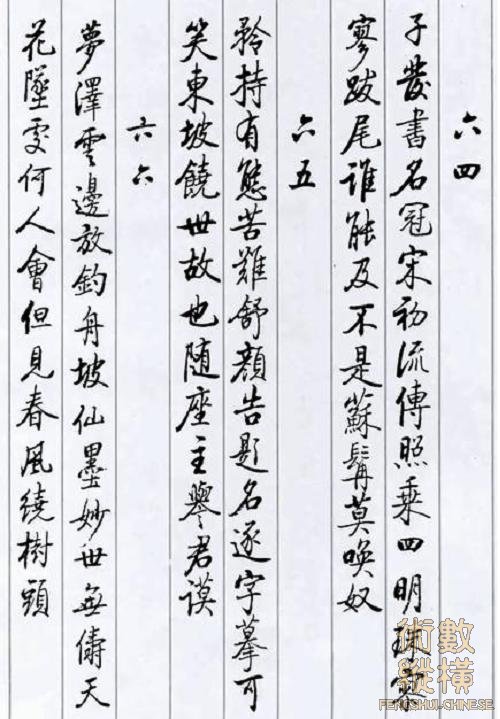 六四
子發書名冠宋初流傳照乘四明珠寥
寥跋尾誰能及不是蘇髯莫喚奴
六五
矜持有態苦難舒顏告題名逐字摹可
笑東坡饒世故也随座主譽君謨
六六
夢澤雲邊放釣舟坡仙墨妙世無儔天
花墜處何人會但見春風繞樹頭
術數
縱橫
FENGSHUI-CHINESE